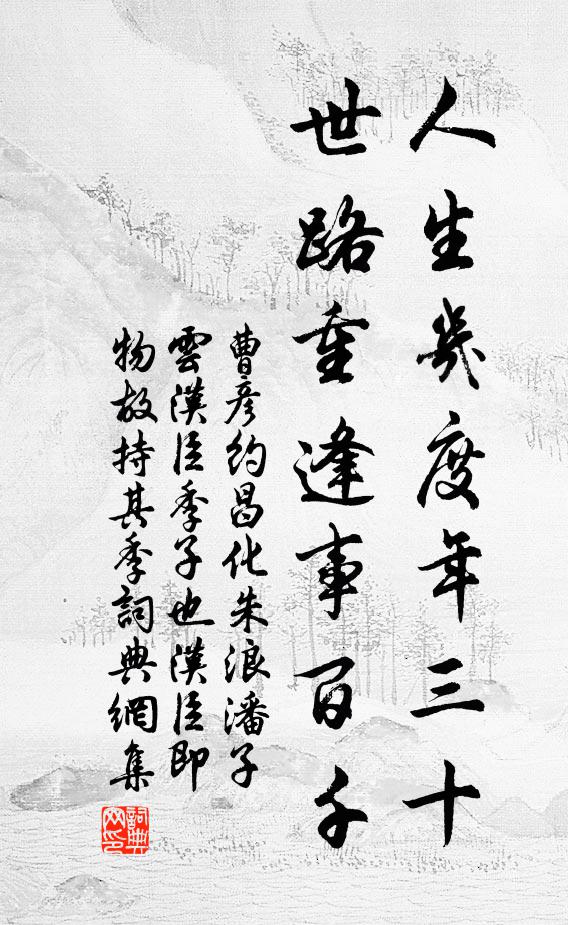 人生幾度年三十
世路重逢事百千
曹彥約昌化朱浪潘子
雲漢臣季子也漢臣即
物故持其季詞典網集
詞典網印